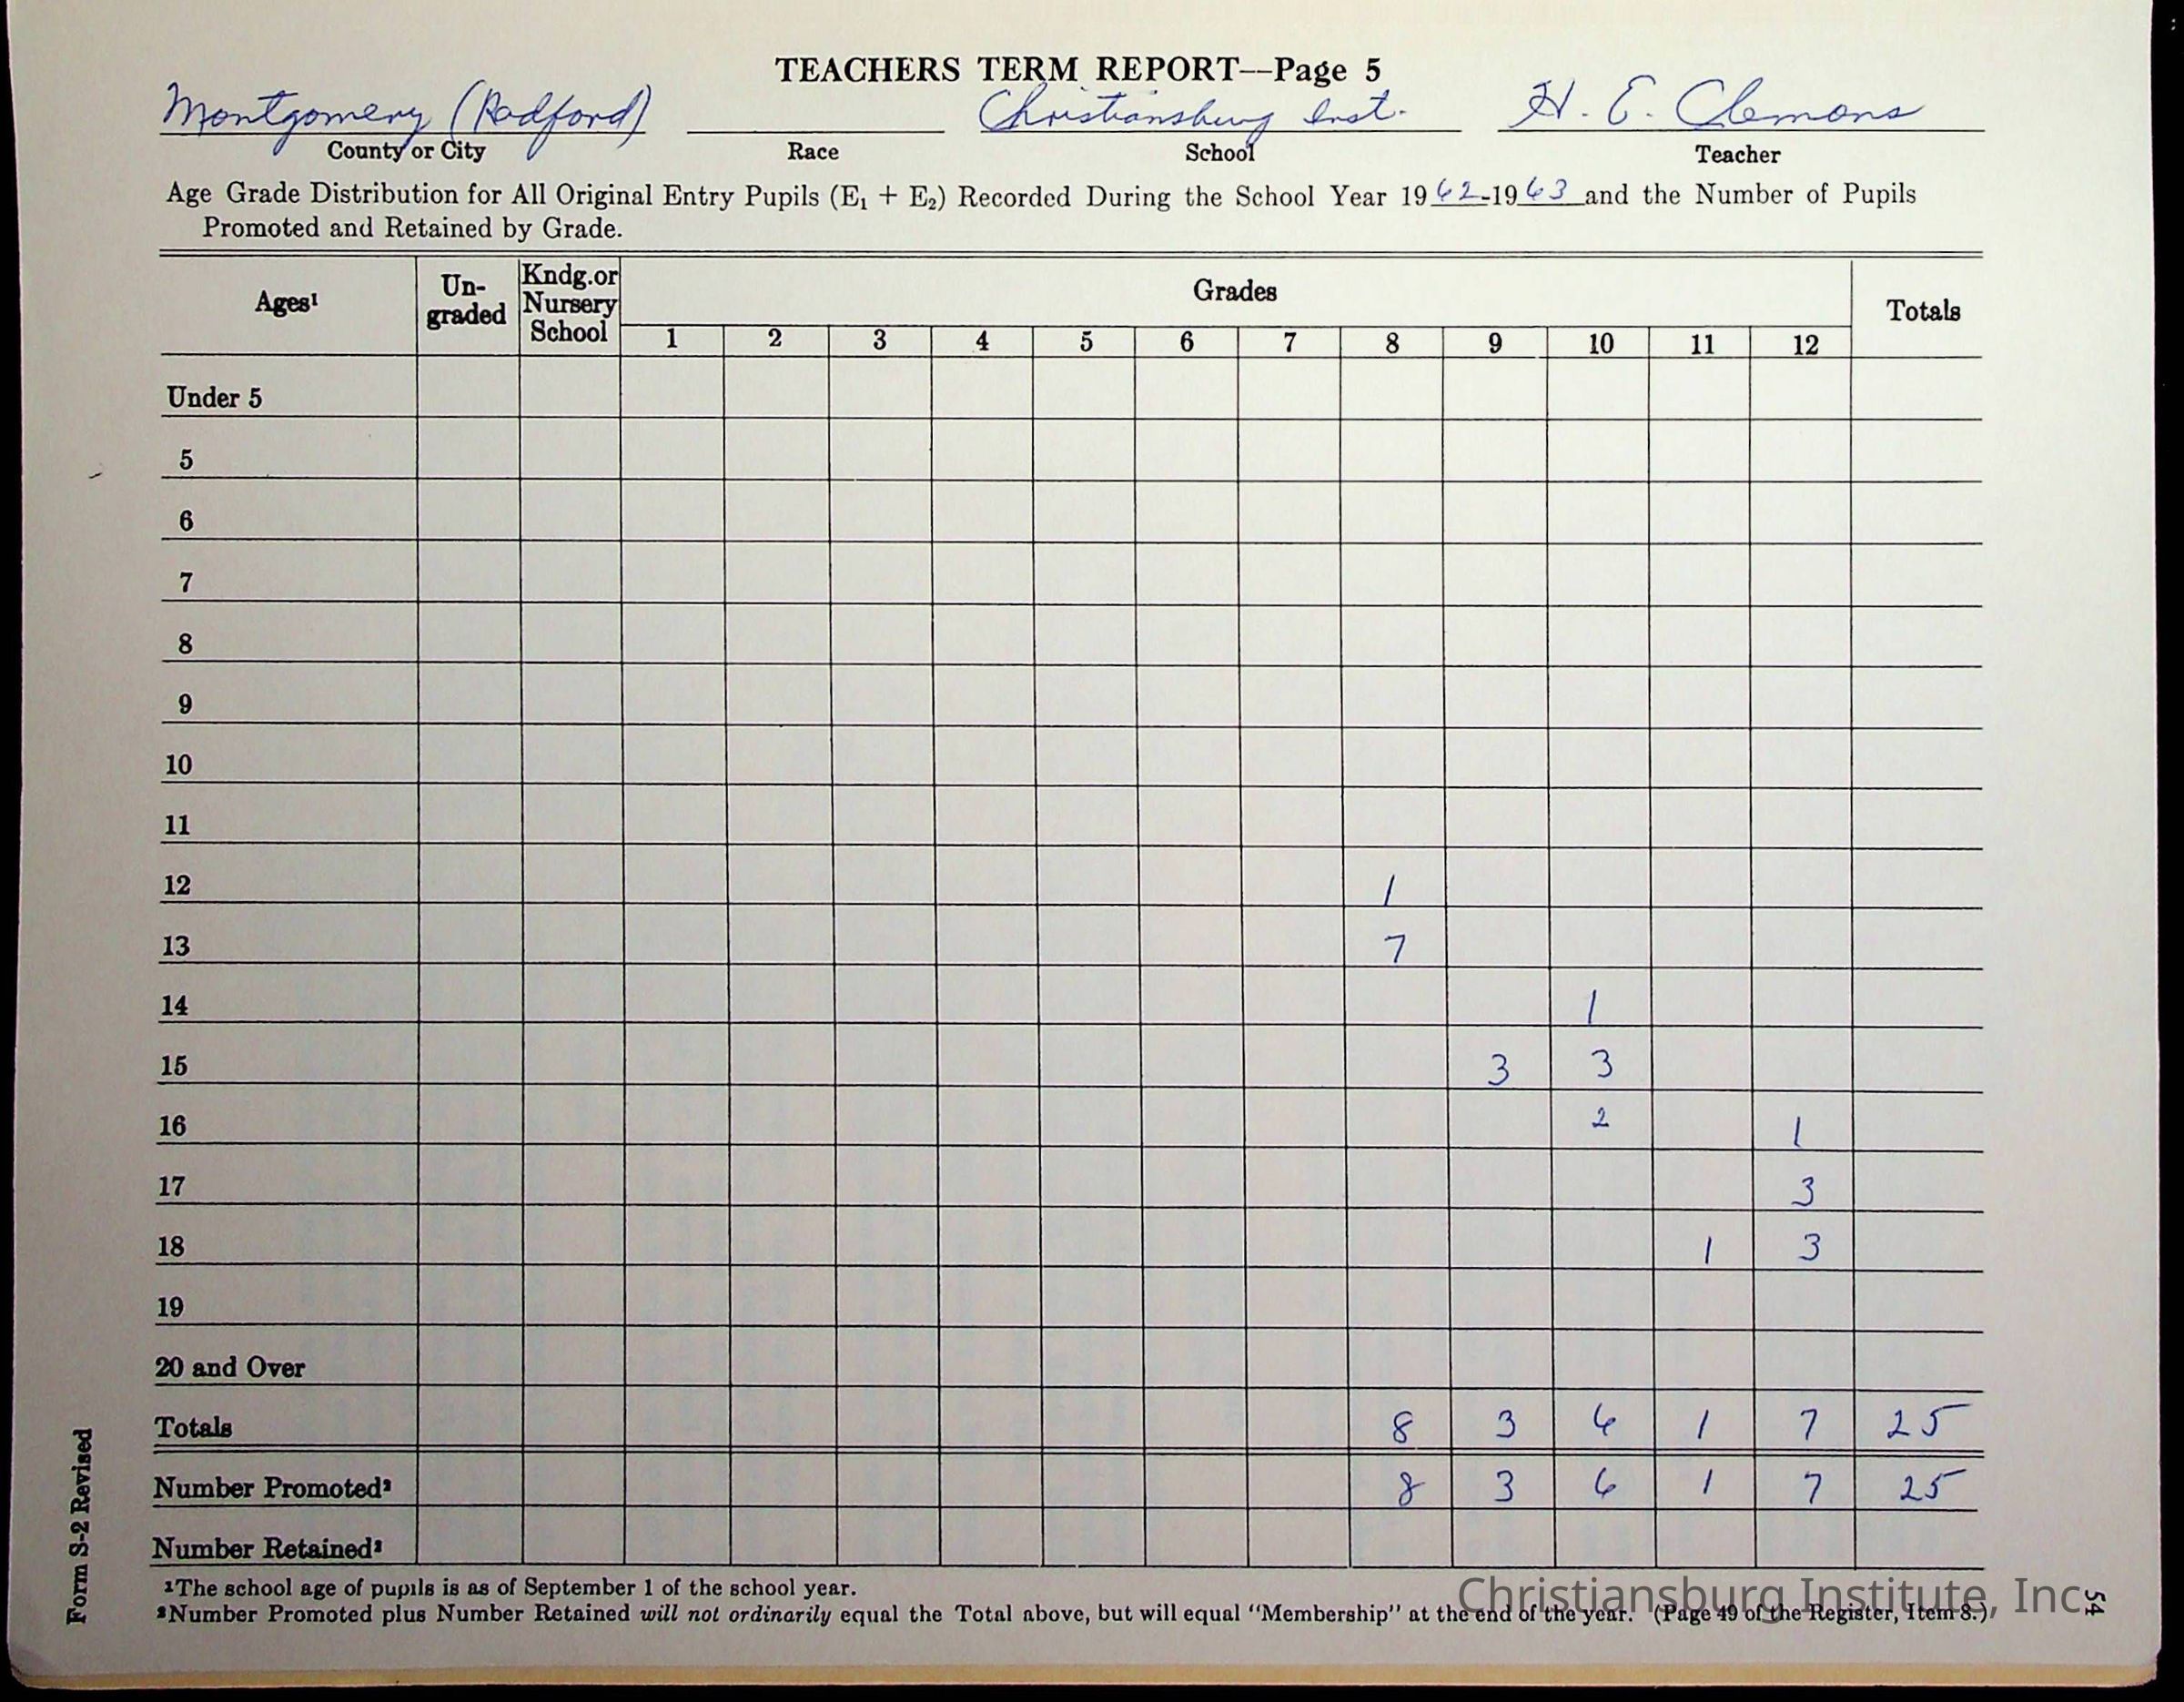 TEACHERS TERM REPORT—Page 5
Montgomery (Radford) Christiansburg Inst. H. E. Clemons
County or City Race School Teacher
Age Grade Distribution for All Original Entry Pupils (E₁ + E₂) Recorded During the School Year 1962-1963 and the Number of Pupils
Promoted and Retained by Grade.
Ages¹ Un-graded Kndg.or Nursery School Grades Totals
1 2 3 4 5 6 7 8 9 10 11 12
Under 5
5
6
7
8
9
10
11
12 1
13 7
14 1
15 3 3
16 2 1
17 3
18 1 3
19
20 and Over
Totals 8 3 6 1 7 25
Number Promoted² 8 3 6 1 7 25
Number Retained²
¹The school age of pupils is as of September 1 of the school year.
²Number Promoted plus Number Retained will not ordinarily equal the Total above, but will equal "Membership" at the end of the year. (Page 49 of the Register, Item 8.)
Form S-2 Revised
54
Christiansburg Institute, Inc.